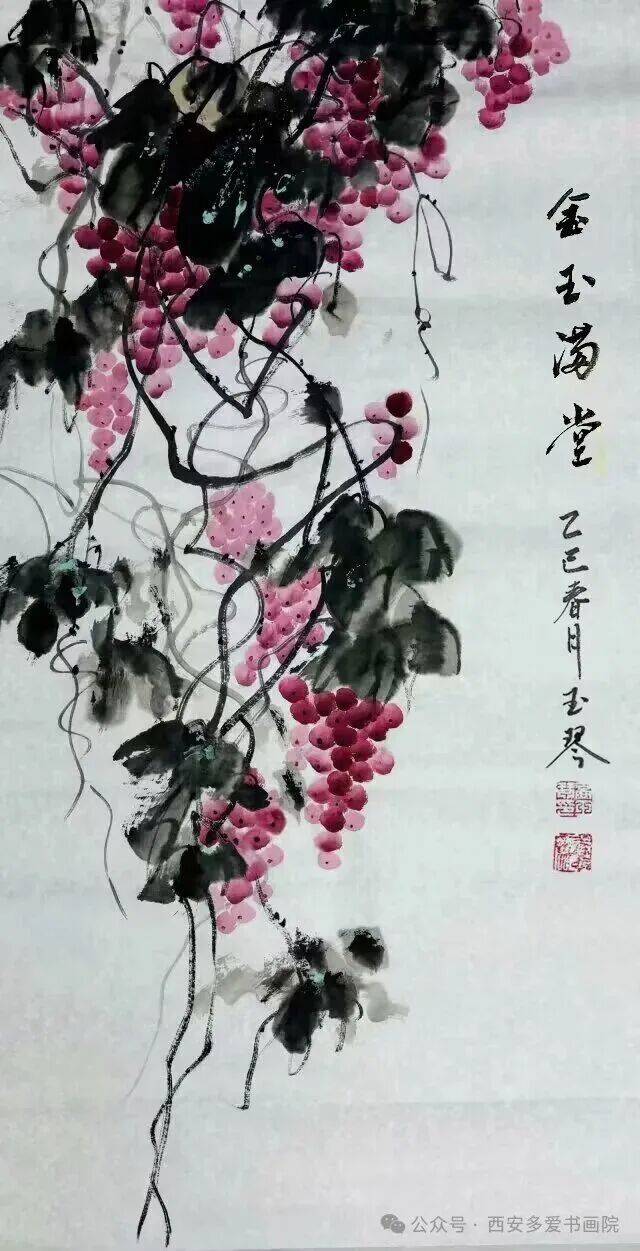 金玉满堂
乙巳春月玉琴
公众号·西安多爱书画院